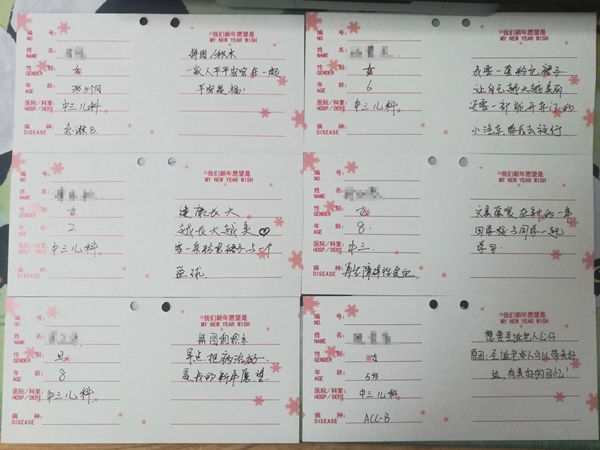 编 号:
姓 名:
NAME
性 别: 女
GENDER
年 龄: 35个月
AGE
医院/科室: 中三儿科
HOSP./DEPT.
病 种:
DISEASE B
*我们新年愿望是
MY NEW YEAR WISH
拼图/积木
一家人平平安安在一起
平安是福!
编 号:
姓 名:
NAME
性 别: 女
GENDER
年 龄: 6
AGE
医院/科室: 中三儿科
HOSP./DEPT.
病 种:
DISEASE
*我们新年愿望是
MY NEW YEAR WISH
我要一条粉色裙子
让自己越大越美丽
还要一部能开车门的
小汽车带我去旅行
编 号:
姓 名:
NAME
性 别: 女
GENDER
年 龄: 2
AGE
医院/科室: 中三儿科
HOSP./DEPT.
病 种:
DISEASE
*我们新年愿望是
MY NEW YEAR WISH
健康长大
越长大越美
要一条粉色裙子与一个
蓝球
编 号:
姓 名:
NAME
性 别: 女
GENDER
年 龄: 8
AGE
医院/科室: 中三
HOSP./DEPT.
病 种: 再生障碍性贫血
DISEASE
*我们新年愿望是
MY NEW YEAR WISH
文具套装 在新的一年
回学校与同学一起
学习
编 号:
姓 名:
NAME
性 别: 男
GENDER
年 龄: 8
AGE
医院/科室: 中三儿科
HOSP./DEPT.
病 种:
DISEASE
*我们新年愿望是
MY NEW YEAR WISH
拼图和积木
早点把病治好
是我的新年愿望
编 号:
姓 名:
NAME
性 别: 女
GENDER
年 龄: 5岁
AGE
医院/科室: 中三儿科
HOSP./DEPT.
病 种: ALL-B
DISEASE
*我们新年愿望是
MY NEW YEAR WISH
想要圣诞老人公仔
原因:圣诞老人可以带来好
运,有美好的回忆!